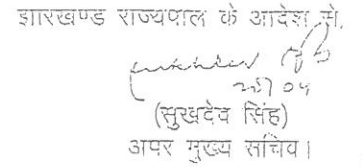 झारखण्ड राज्यपाल के आदेश से,
(सुखदेव सिंह)
अपर मुख्य सचिव।